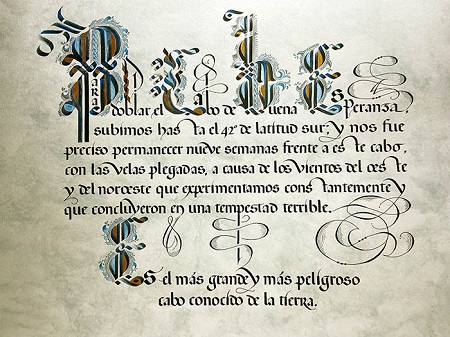 Para doblar el Cabo de Buena Esperanza,
subimos hasta el 42º de latitud sur; y nos fue
preciso permanecer nueve semanas frente a este cabo,
con las velas plegadas, a causa de los vientos del oeste
y del noroeste que experimentamos constantemente y
que concluyeron en una tempestad terrible.
Es el más grande y más peligroso
cabo conocido de la tierra.